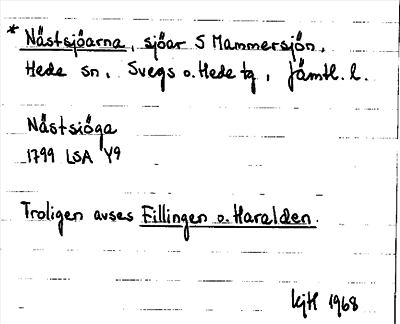 * Nästsjöarna, sjöar S Mammersjön,
Hede sn, Svegs o. Hede tg, Jämtl. l.
Nästsiöga
1799 LSA Y9
Troligen avses Fillingen o. Haralden.
KjH 1968